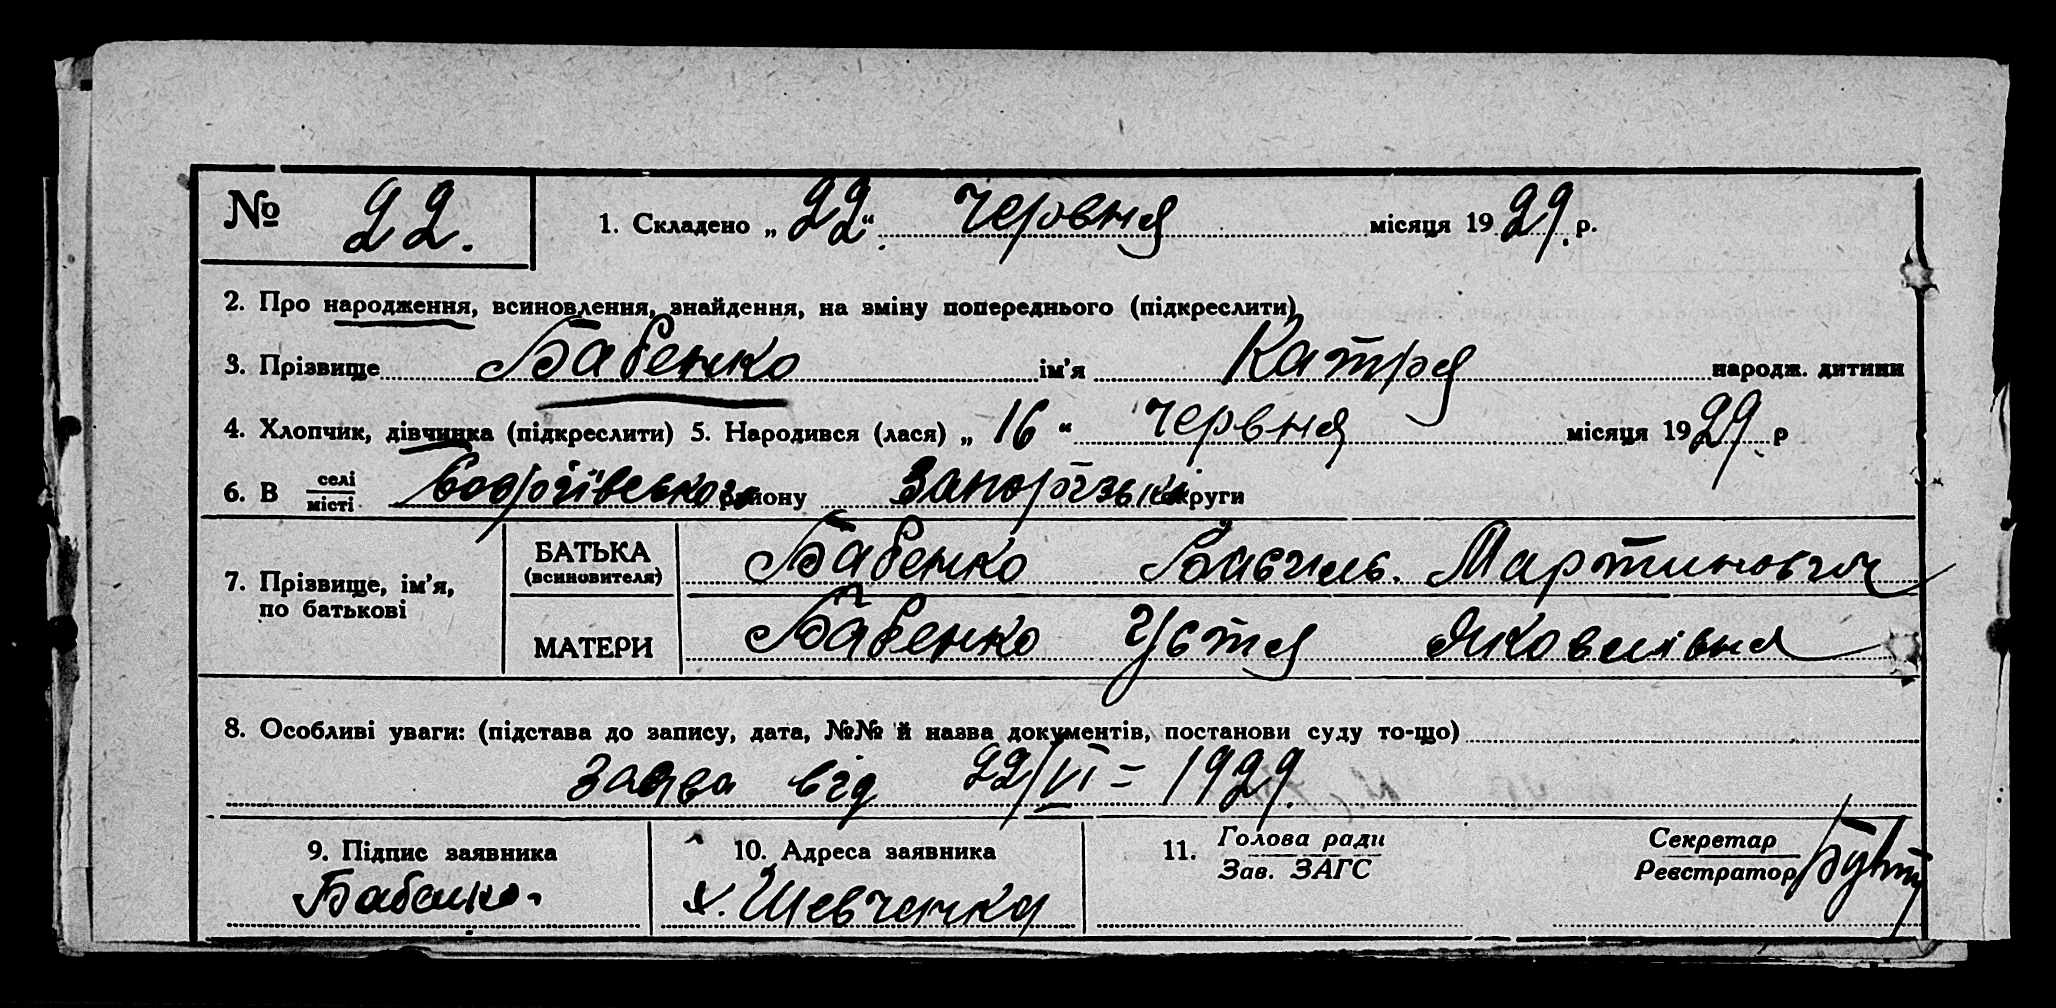 № 22. 1. Складено „ 22 “ червня місяця 1929 р.
2. Про народження, всиновлення, знайдення, на зміну попереднього (підкреслити)
3. Прізвище Бабенко ім’я Катря народж. дитини
4. Хлопчик, дівчинка (підкреслити) 5. Народився (лася) „ 16 “ червня місяця 1929 р
6. В селі
місті району Запорізької округи
7. Прізвище, ім’я,
по батькові
БАТЬКА
(всиновителя)
Бабенко Василь Мартинович
МАТЕРИ Бабенко Устя Яковлівна
8. Особливі уваги: (підстава до запису, дата, №№ й назва документів, постанови суду то-що)
Заява від 22/VI – 1929.
9. Підпис заявника 10. Адреса заявника 11. Голова ради
Зав. ЗАГС
Секретар
Реєстратор
Бабенко. х. Шевченки